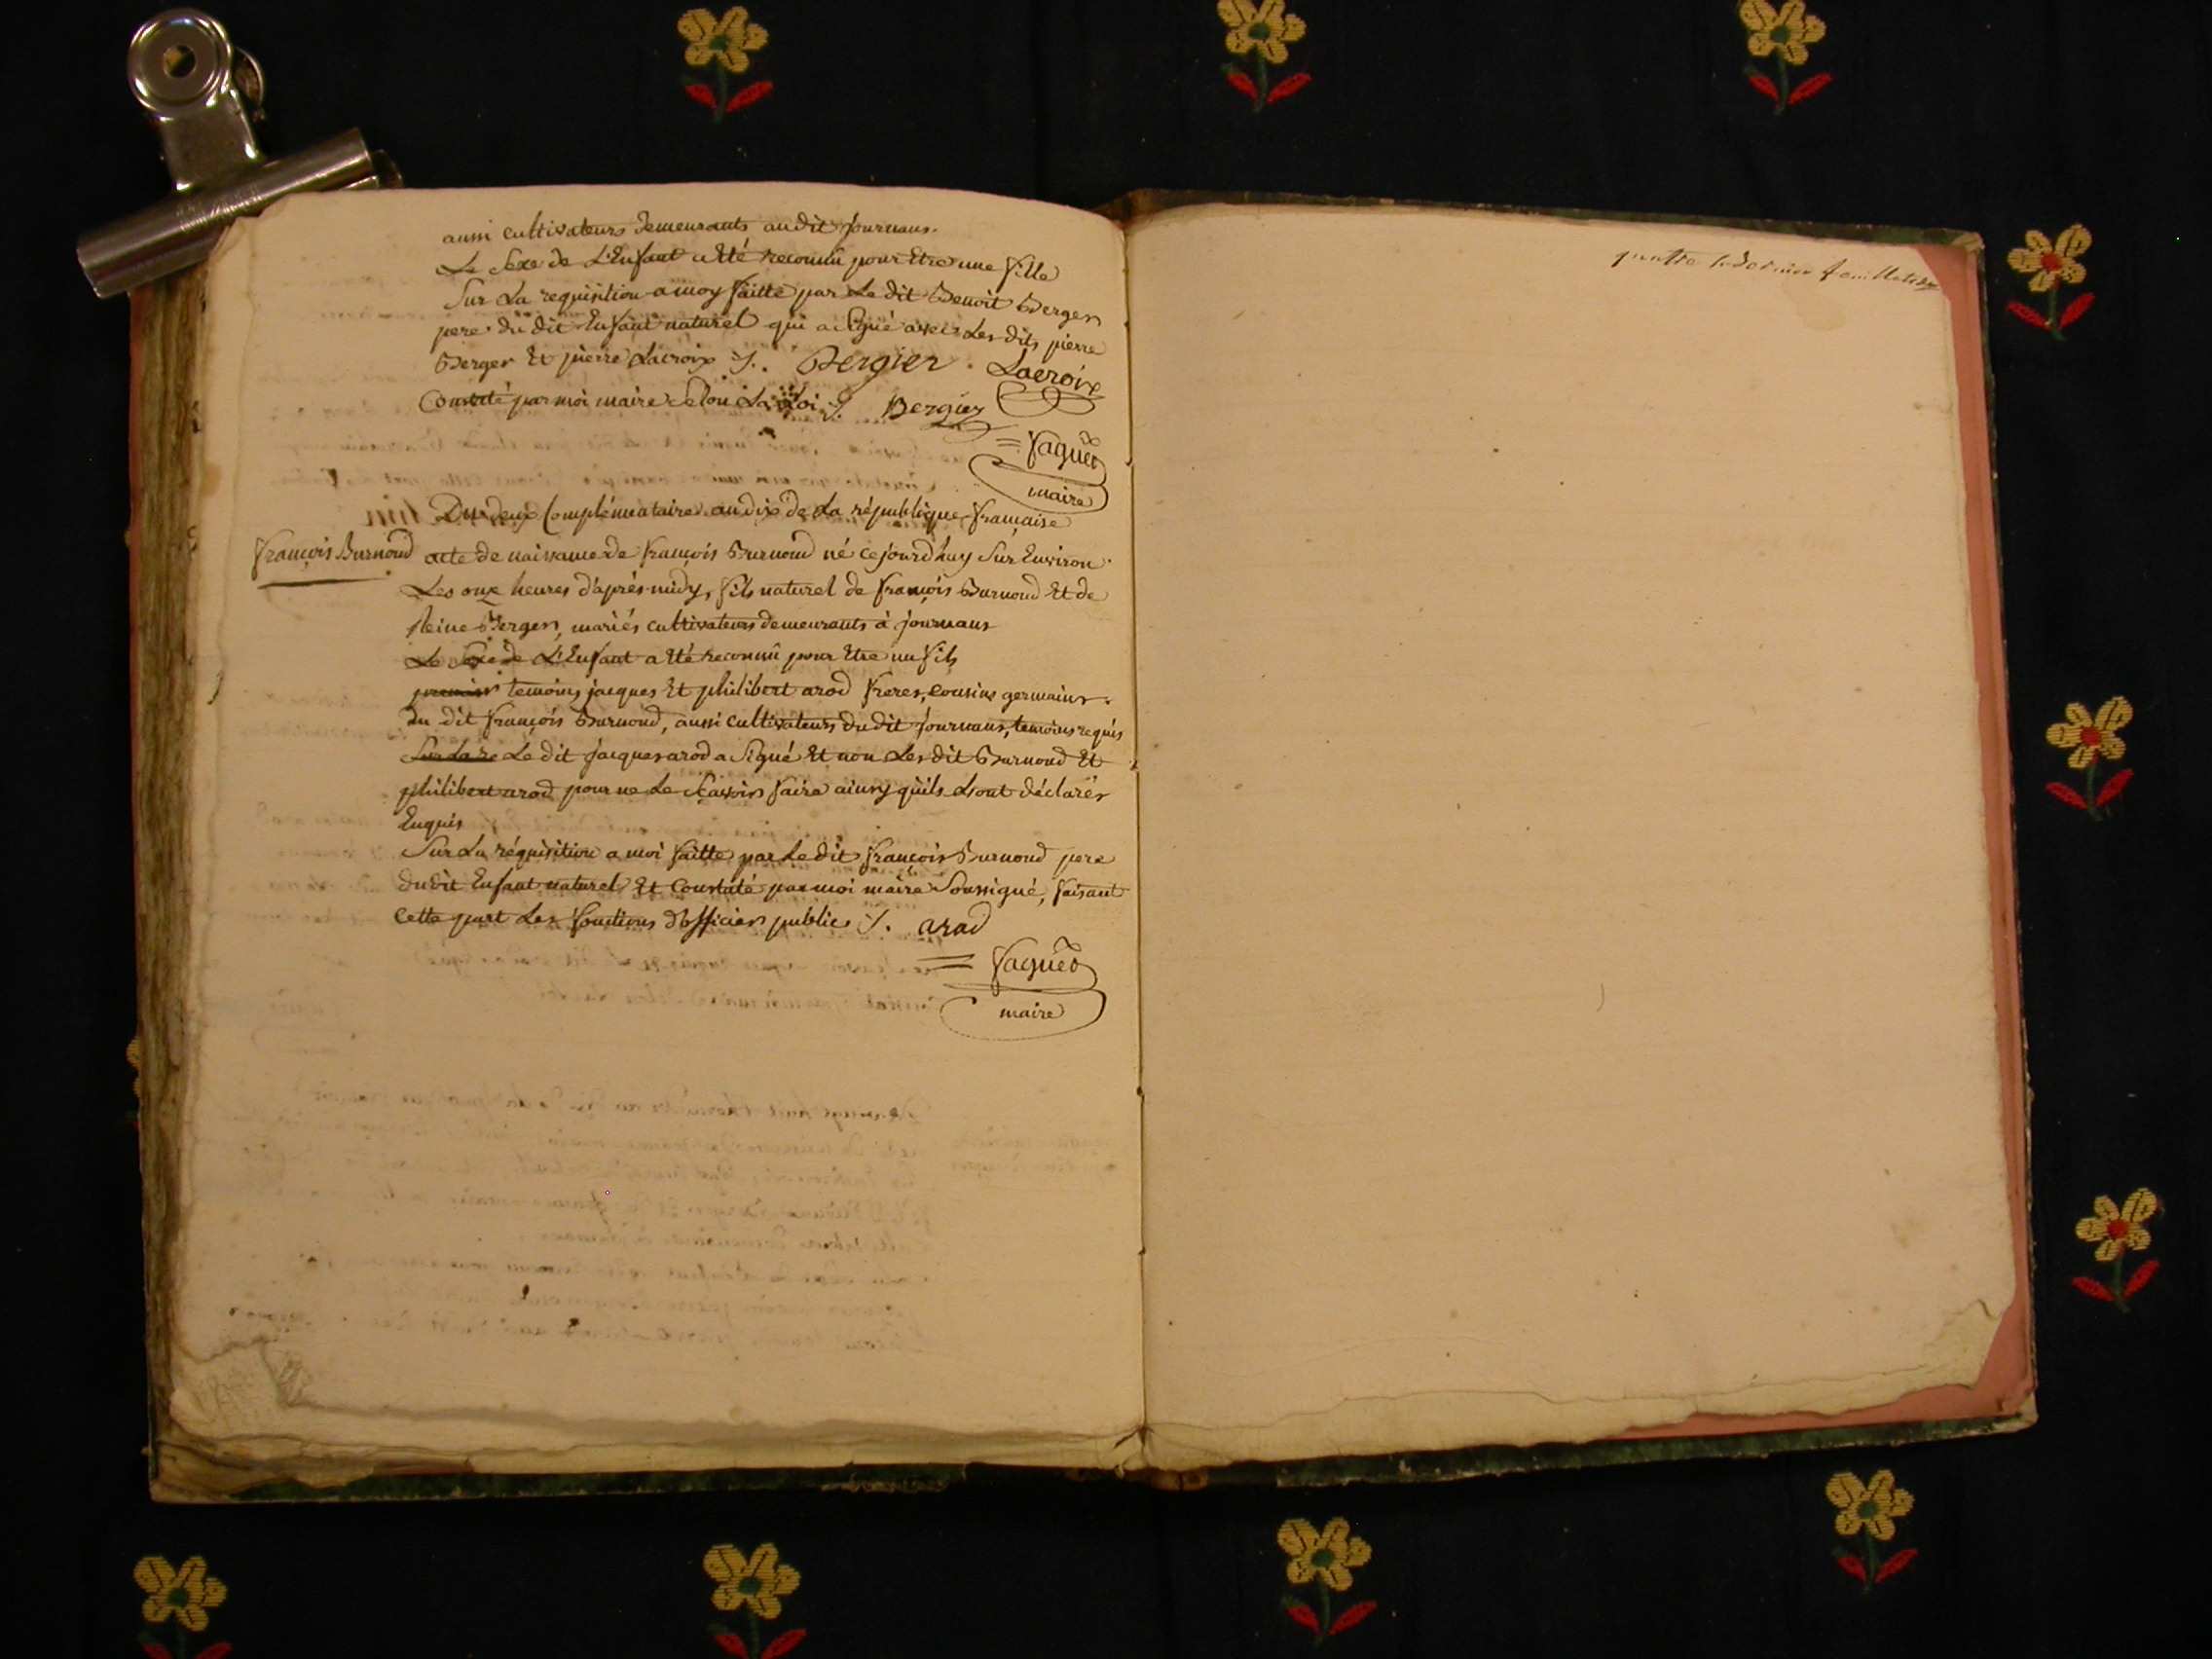 aussi cultivateurs demeurants audit journans.
Le Sexe de L'Enfant a Eté reconnû pour Etre une fille
Sur La requisition a moy faitte par Le dit Benoit Berger
pere du dit Enfant naturel qui a signé avec Les dits pierre
Berger Et pierre Lacroix ./. Bergier . Lacroix
Constaté par moi maire selon La Loi ./. Bergier
= faguet
maire
Du deux Complémentaire an dix de La république française
françois Burnoud
acte de naissance de françois Burnoud né cejourdhuy Sur Environ
Les onze heures d'après-midy, fils naturel de françois Burnoud Et de
Reine Berger, mariés cultivateurs demeurants à journans
Le Sexe de L'Enfant a Eté reconnû pour Etre un fils
premier temoins jacques Et philibert arod freres, cousins germains
du dit françois Burnoud, aussi cultivateurs du dit journans, temoins requis
Sur La re Le dit jacques arod a Signé Et non Les dit Burnoud Et
philibert arod pour ne Le Sçavoir faire ainsy qu'ils L'ont déclarés
Enquis
Sur La réquisition a moi faitte par Le dit françois Burnoud pere
dudit Enfant naturel Et Constaté par moi maire Soussigné, faisant
cette part Les fonctions d'officier public ./. arod
= faguet
maire